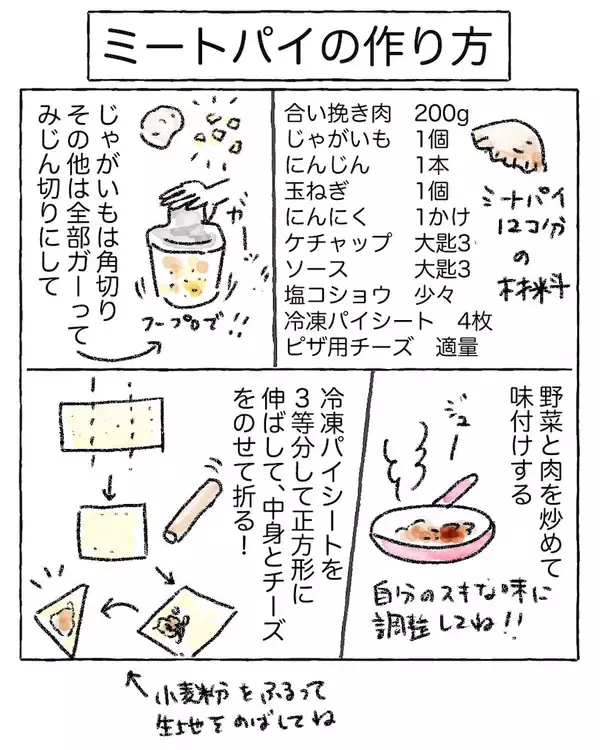 ミートパイの作り方
合い挽き肉　200g
じゃがいも　1個
にんじん　1本
玉ねぎ　1個
にんにく　1かけ
ケチャップ　大匙3
ソース　大匙3
塩コショウ　少々
冷凍パイシート　4枚
ピザ用チーズ　適量
ミートパイ
12コ分
の
材料
じゃがいもは角切り
その他は全部ガーって
みじん切りにして
ガー
フープロで!!
野菜と肉を炒めて
味付けする
ジュー
自分のスキな味に
調整してね!!
冷凍パイシートを
3等分して正方形に
伸ばして、中身とチーズ
をのせて折る!
小麦粉をふるって
生地をのばしてね